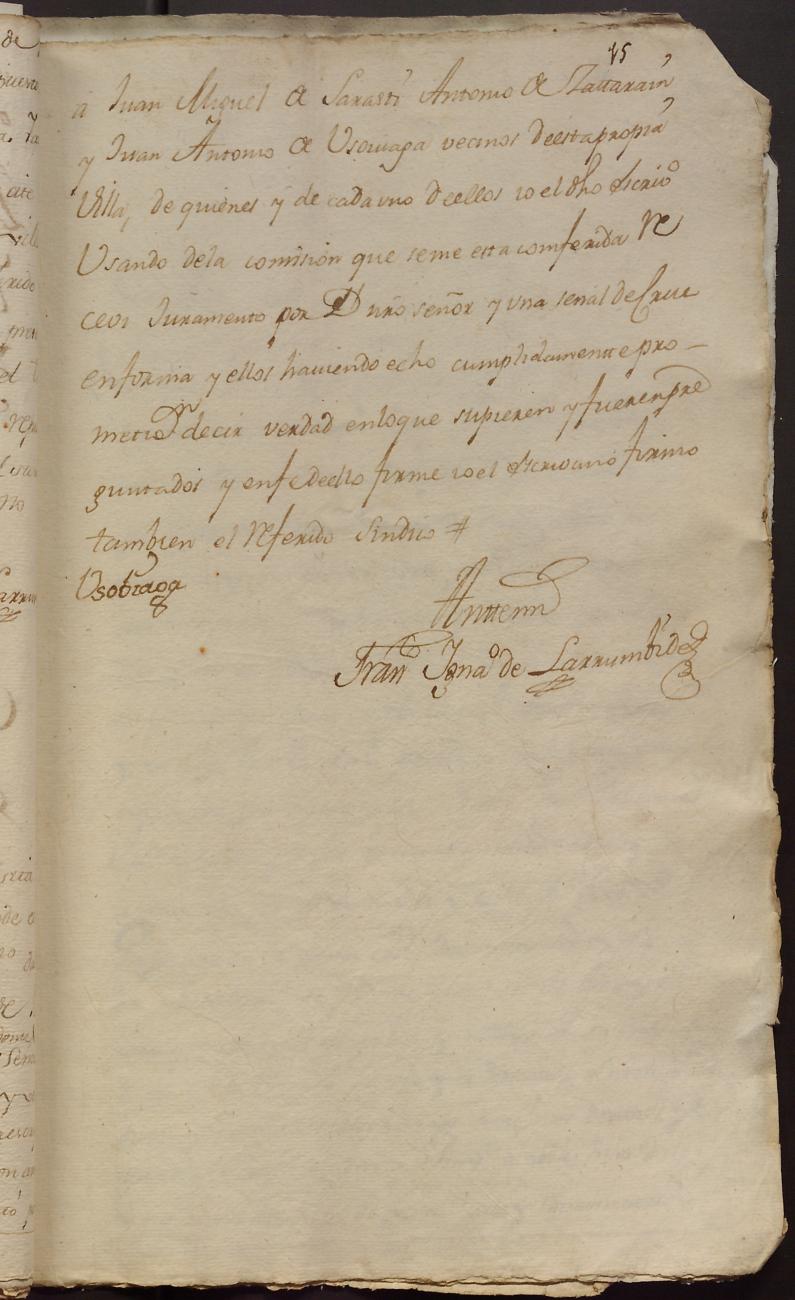 15
a Juan Miguel de Sarasti Antonio de Zattarain
y Juan Antonio de Usouiaga vecinos deesta propia
Villa, de quienes y de cada uno deellos io el dho Escriuo
Usando dela comision que seme esta comferida Re
ceui Juramento por D nro señor y una señal de Cruz
en forma y ellos hauiendo echo cumplidamente pro-
metieron decir verdad enloque supieren y fueren pre
guntados y enfe deello firme io el Escriuano firmo
tambien el referido Sindico #
Usobiaga
Antemi
Fran Igna⁰ de Larrumbide